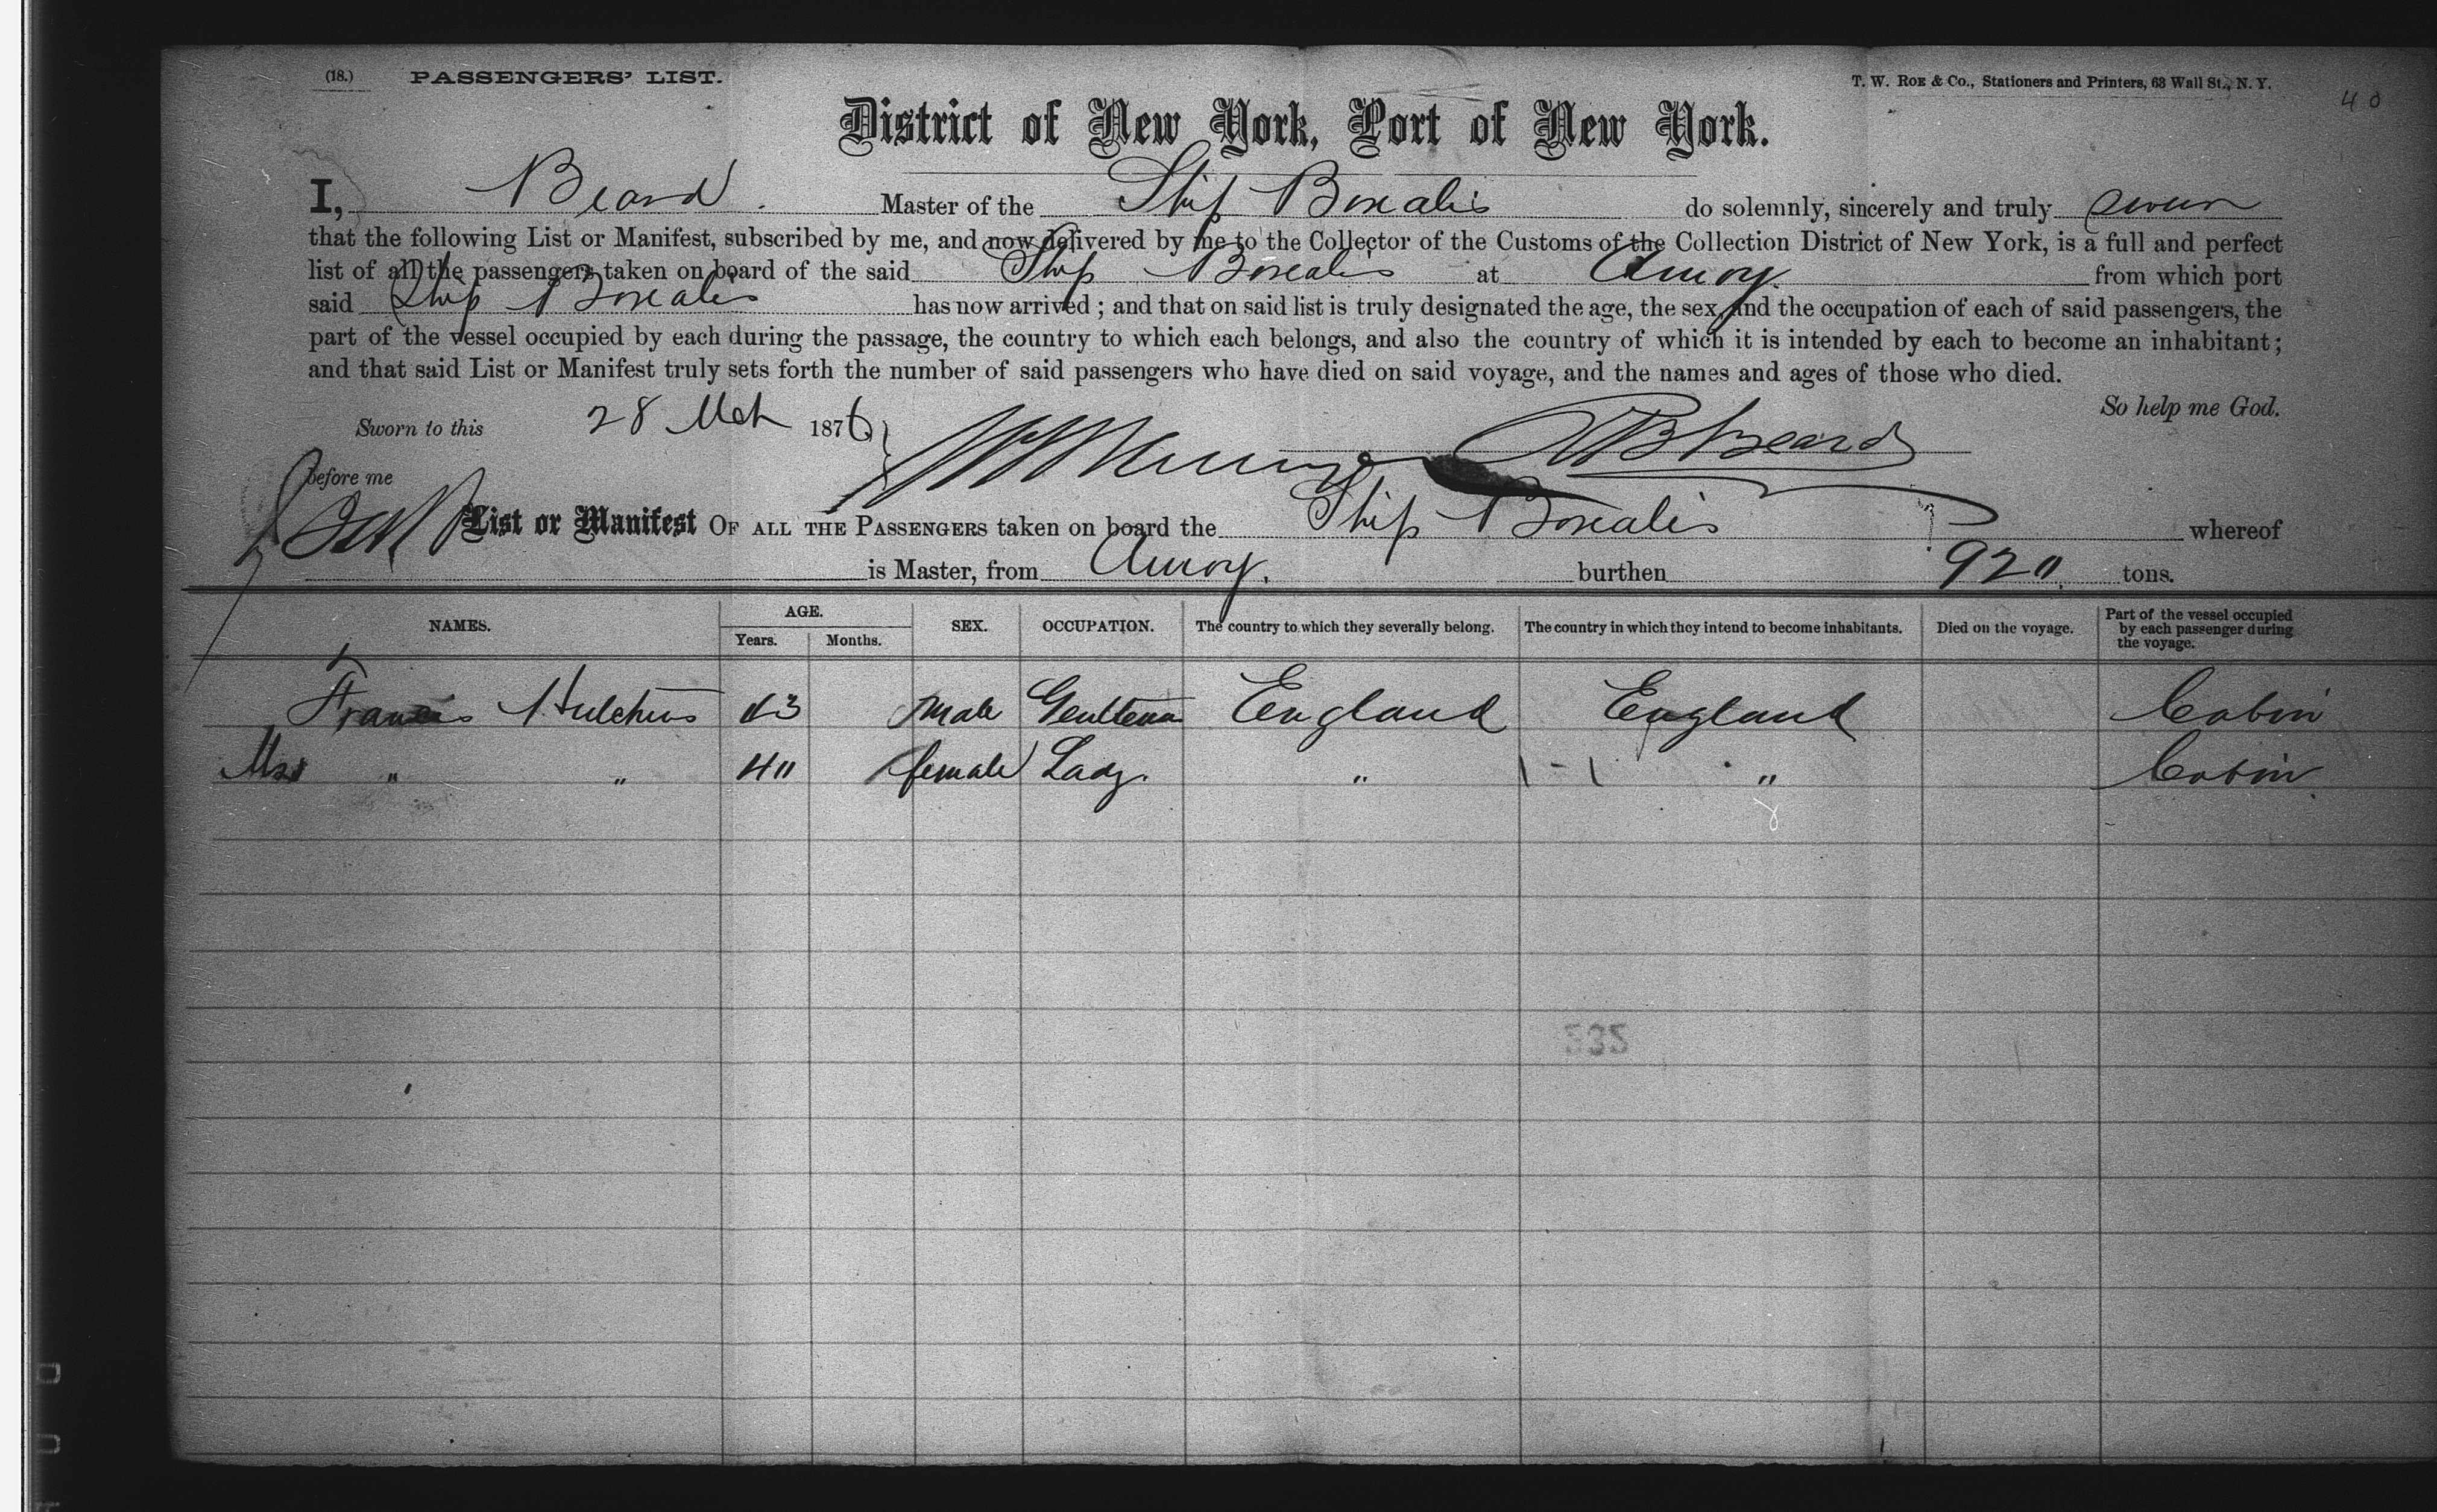 (18.) PASSENGERS' LIST. T. W. ROE & Co., Stationers and Printers, 63 Wall St., N. Y.
40
District of New York, Port of New York.
I, Beard. Master of the Ship Borealis do solemnly, sincerely and truly swear
that the following List or Manifest, subscribed by me, and now delivered by me to the Collector of the Customs of the Collection District of New York, is a full and perfect
list of all the passengers taken on board of the said Ship Borealis at Amoy. from which port
said Ship Borealis has now arrived; and that on said list is truly designated the age, the sex, and the occupation of each of said passengers, the
part of the vessel occupied by each during the passage, the country to which each belongs, and also the country of which it is intended by each to become an inhabitant;
and that said List or Manifest truly sets forth the number of said passengers who have died on said voyage, and the names and ages of those who died.
So help me God.
Sworn to this 28 Mch 1876
Beard
before me
List or Manifest OF ALL THE PASSENGERS taken on board the Ship Borealis whereof
is Master, from Amoy. burthen 920 tons.
NAMES. AGE. Years. Months. SEX. OCCUPATION. The country to which they severally belong. The country in which they intend to become inhabitants. Died on the voyage. Part of the vessel occupied by each passenger during the voyage.
Francis Hutchins male England England Cabin
Mrs " " 40 female Lady. " " Cabin
535